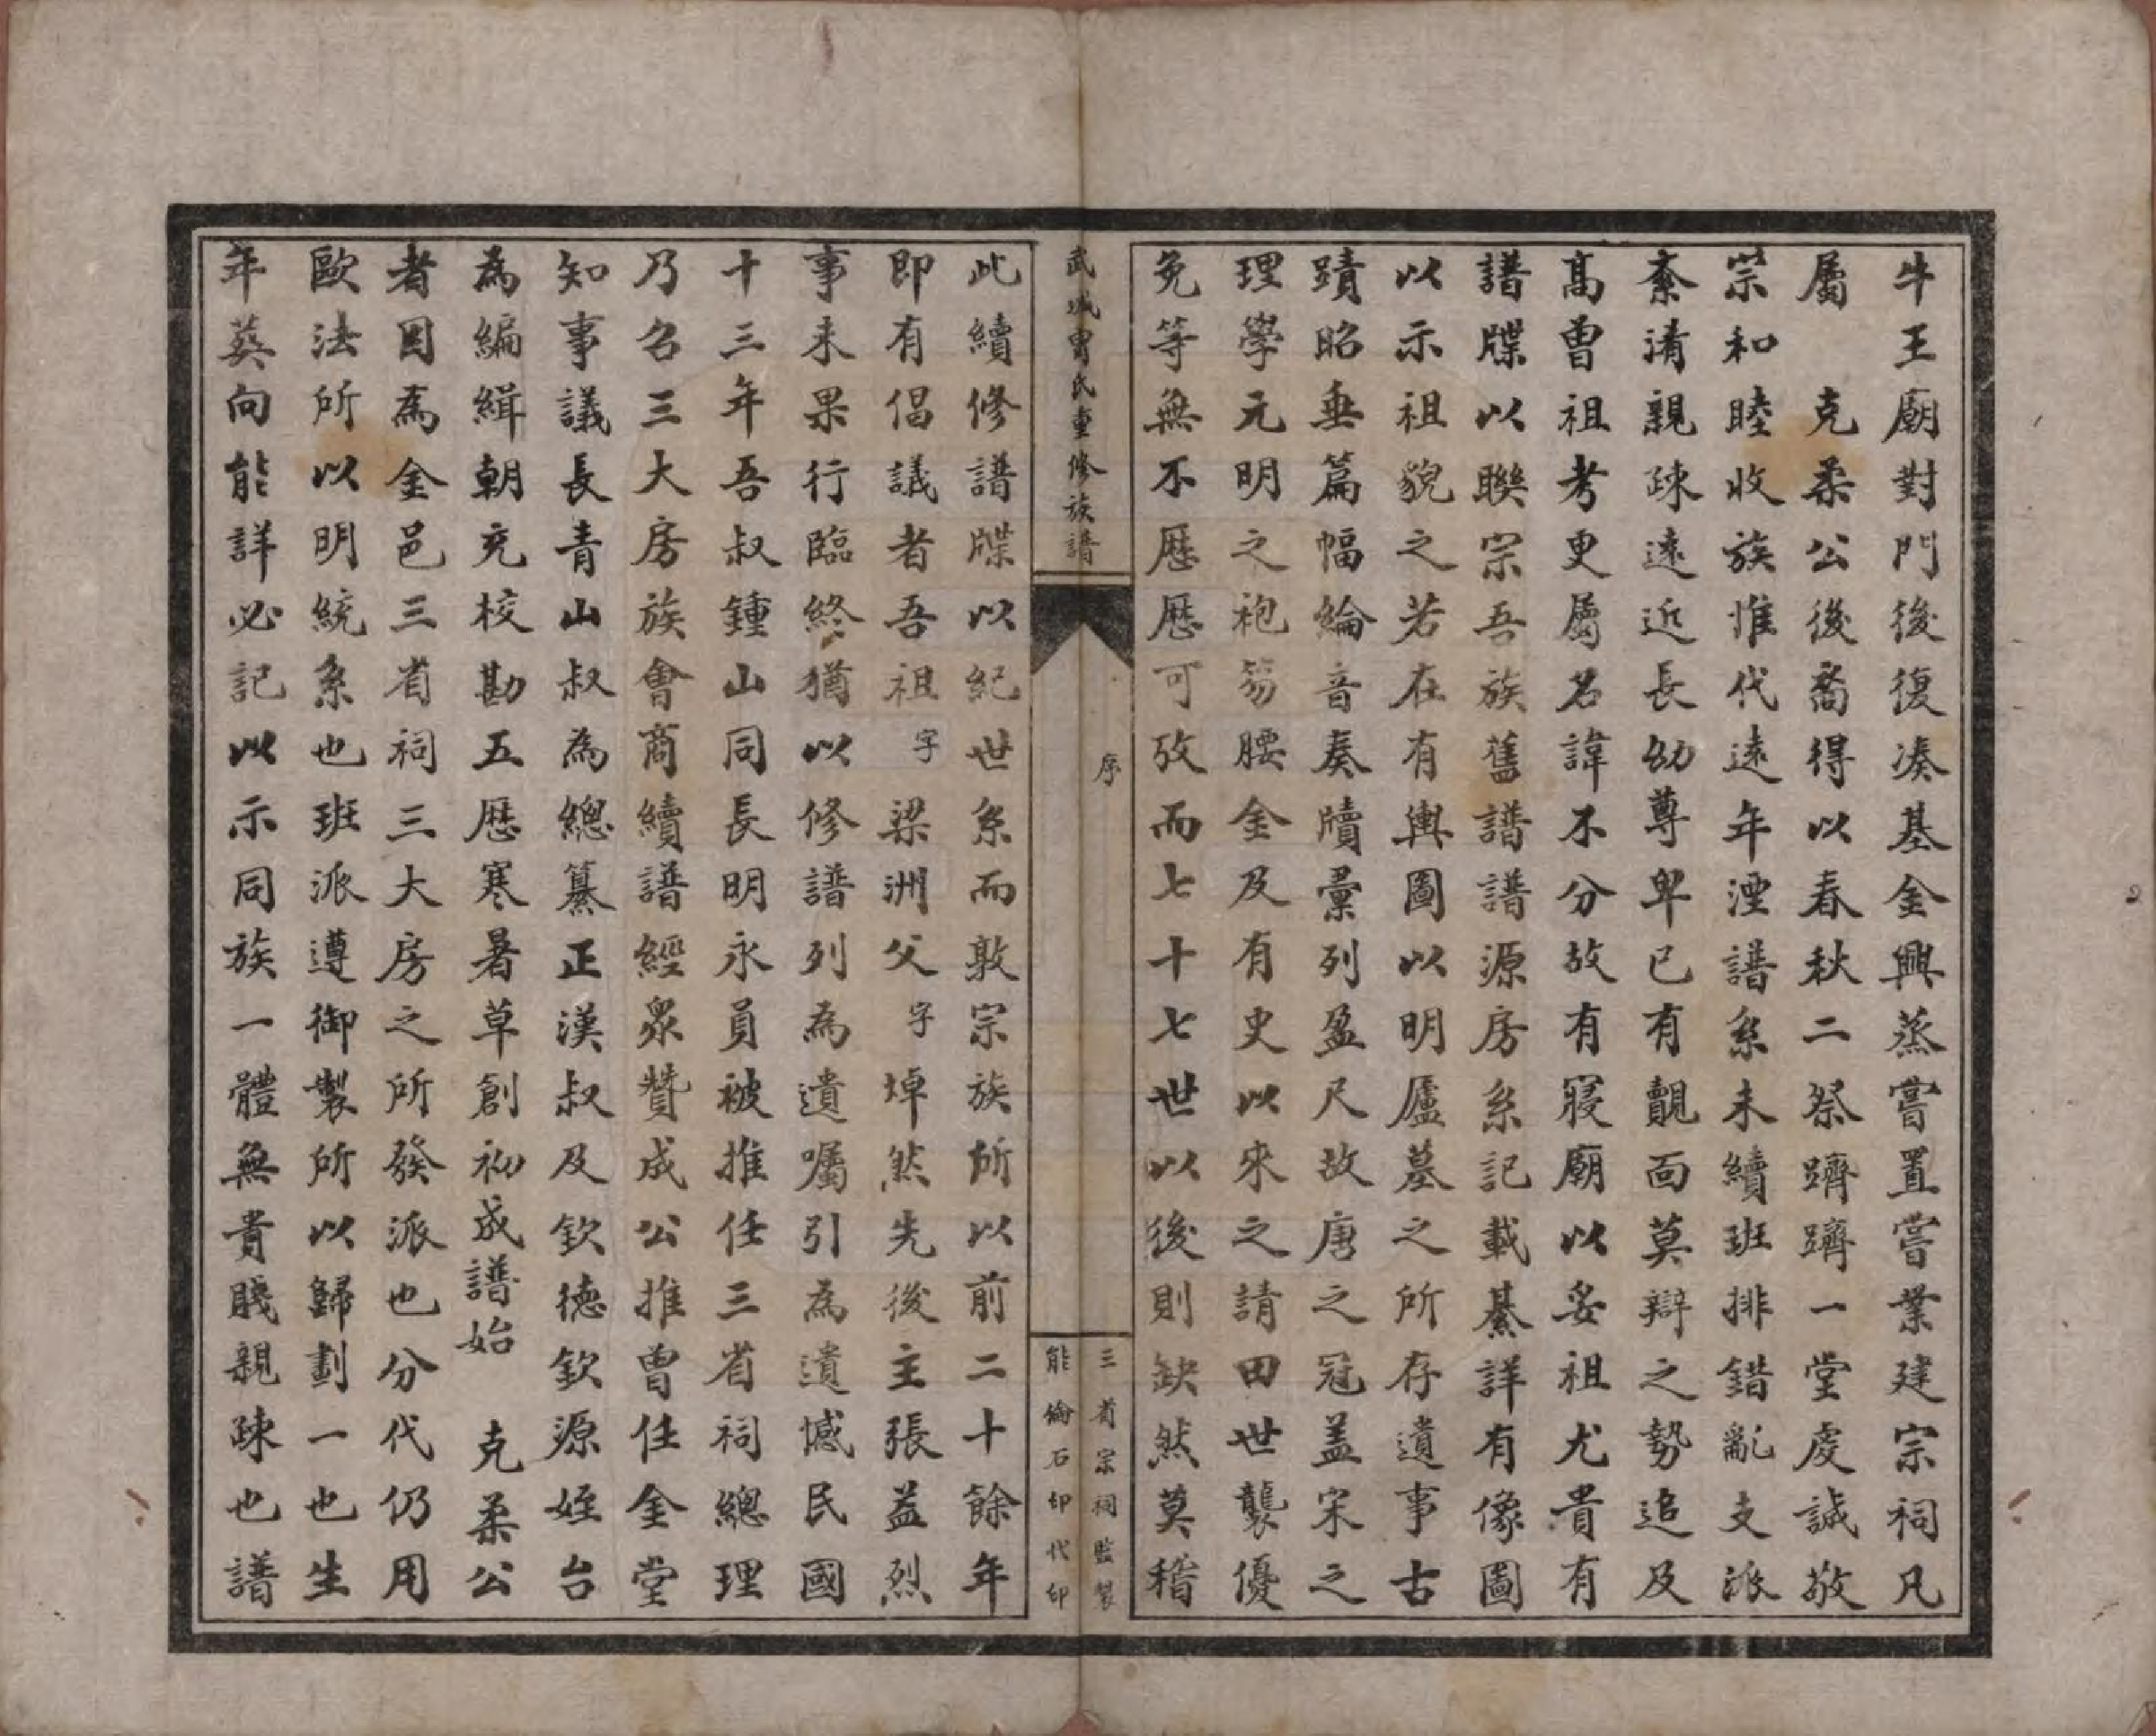 牛王廟對門後復凑基金興蒸嘗置嘗業建宗祠凡
屬　克柔公後裔得以春秋二祭躋躋一堂虔誠敬
宗和睦收族惟代遠年湮譜系未續班排錯亂支派
紊淆親疎遠近長幼尊卑已有覿面莫辯之勢追及
高曾祖考更屬名諱不分故有寢廟以妥祖尤貴有
譜牒以聯宗吾族舊譜譜源房系記載綦詳有像圖
以示祖貌之若在有輿圖以明廬墓之所存遺事古
蹟昭垂篇幅綸音奏牘彙列盈尺故唐之冠盖宋之
理學元明之袍笏腰金及有史以來之請田世襲優
免等無不歷歷可攷而七十七世以後則缺然莫稽
武城曾氏重修族譜
序
三省宗祠監製
能倫石印代印
此續修譜牒以紀世系而敦宗族所以前二十餘年
即有倡議者吾祖字梁洲父字焯然先後主張益烈
事未果行臨終猶以修譜列為遺囑引為遺憾民國
十三年吾叔鍾山同長明永員被推任三省祠總理
乃召三大房族會商續譜經眾贊成公推曾任金堂
知事議長青山叔為總纂正漢叔及欽德欽源姪台
為編緝朝充校勘五歷寒暑草創初成譜始　克柔公
者因為金邑三省祠三大房之所發派也分代仍用
歐法所以明統系也班派遵御製所以歸劃一也生
年葵向能詳必記以示同族一體無貴賤親疎也譜